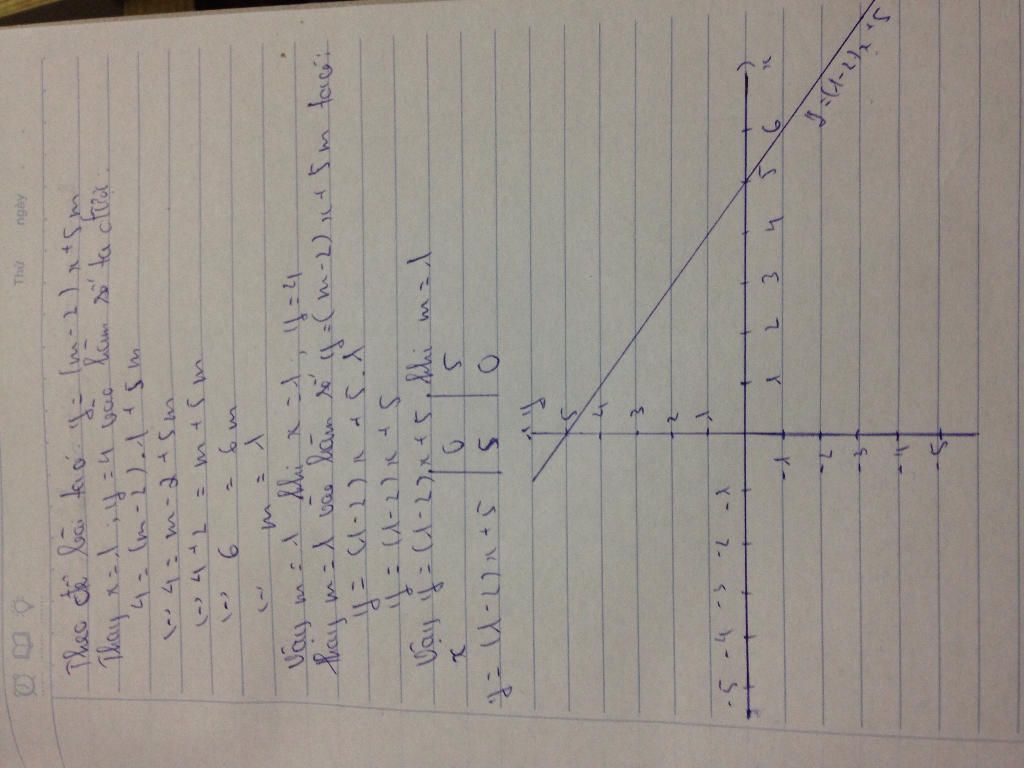 Thứ ngày
Theo đề bài ta có y = (m - 2) x + 5m
Thay x = 1 ; y = 4 vào hàm số ta được.
4 = (m - 2) . 1 + 5m
<-> 4 = m - 2 + 5m
<-> 4 + 2 = m + 5m
<-> 6 = 6m
<-> m = 1
Vậy m = 1 khi x = 1 ; y = 4
thay m = 1 vào hàm số y = (m - 2) x + 5m ta có:
y = (1 - 2) x + 5 . 1
y = (1 - 2) x + 5
Vậy y = (1 - 2) x + 5 khi m = 1
x 0 5
y = (1 - 2) x + 5 5 0
y
5
4
3
2
1
-5 -4 -3 -2 -1 1 2 3 4 5 6 x
-1
-2
-3
-4
-5
y = (1 - 2) x + 5